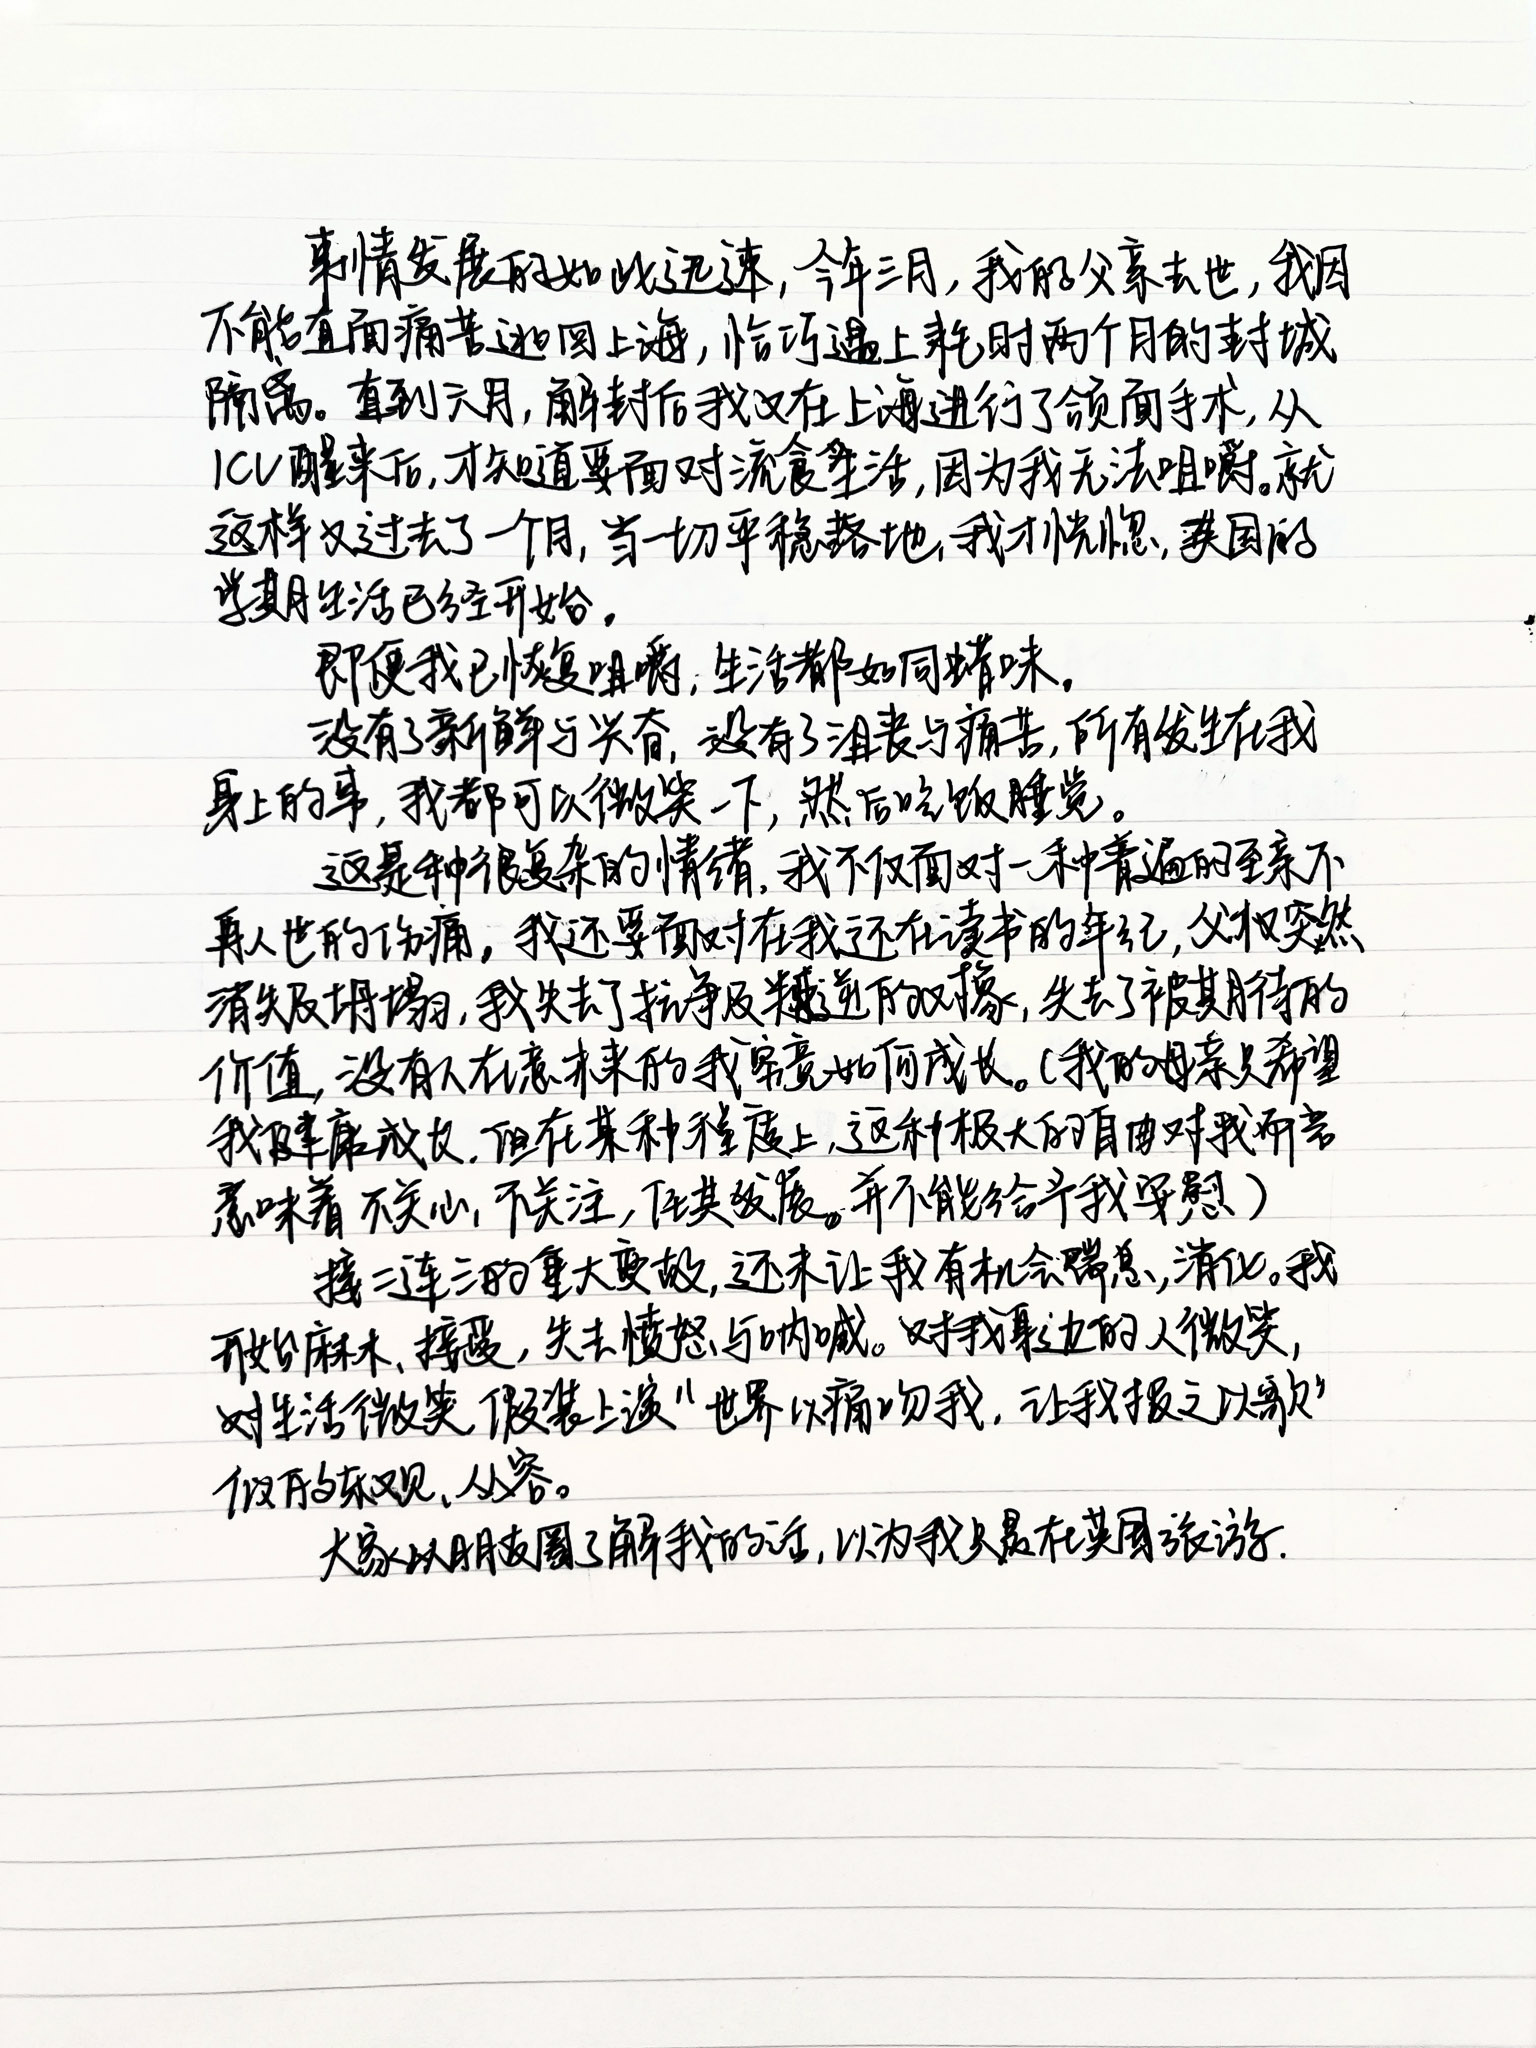 事情发展的如此迅速，今年三月，我的父亲去世，我因
不能直面痛苦逃回上海，恰巧遇上耗时两个月的封城
隔离。直到六月，解封后我又在上海进行了颌面手术，从
ICU醒来后，才知道要面对流食生活，因为我无法咀嚼。就
这样又过去了一个月，当一切平稳落地，我才恍惚，英国的
学期生活已经开始。
即便我已恢复咀嚼，生活都如同蜡味。
没有了新鲜与兴奋，没有了沮丧与痛苦，所有发生在我
身上的事，我都可以微笑一下，然后吃饭睡觉。
这是种很复杂的情绪，我不仅面对一种普遍的至亲不
再人世的伤痛，我还要面对在我还在读书的年纪，父权突然
消失及坍塌，我失去了抗争及叛逆的对象，失去了被期待的
价值，没有人在意未来的我究竟如何成长。（我的母亲只希望
我健康成长，但在某种程度上，这种极大的自由对我而言
意味着不关心，不关注，任其发展。并不能给予我安慰）
接二连三的重大变故，还未让我有机会喘息，消化。我
开始麻木、接受，失去愤怒与呐喊。对我身边的人微笑，
对生活微笑，假装上演“世界以痛吻我，让我报之以歌”
似的乐观、从容。
大家以朋友圈了解我的话，以为我只是在英国旅游。